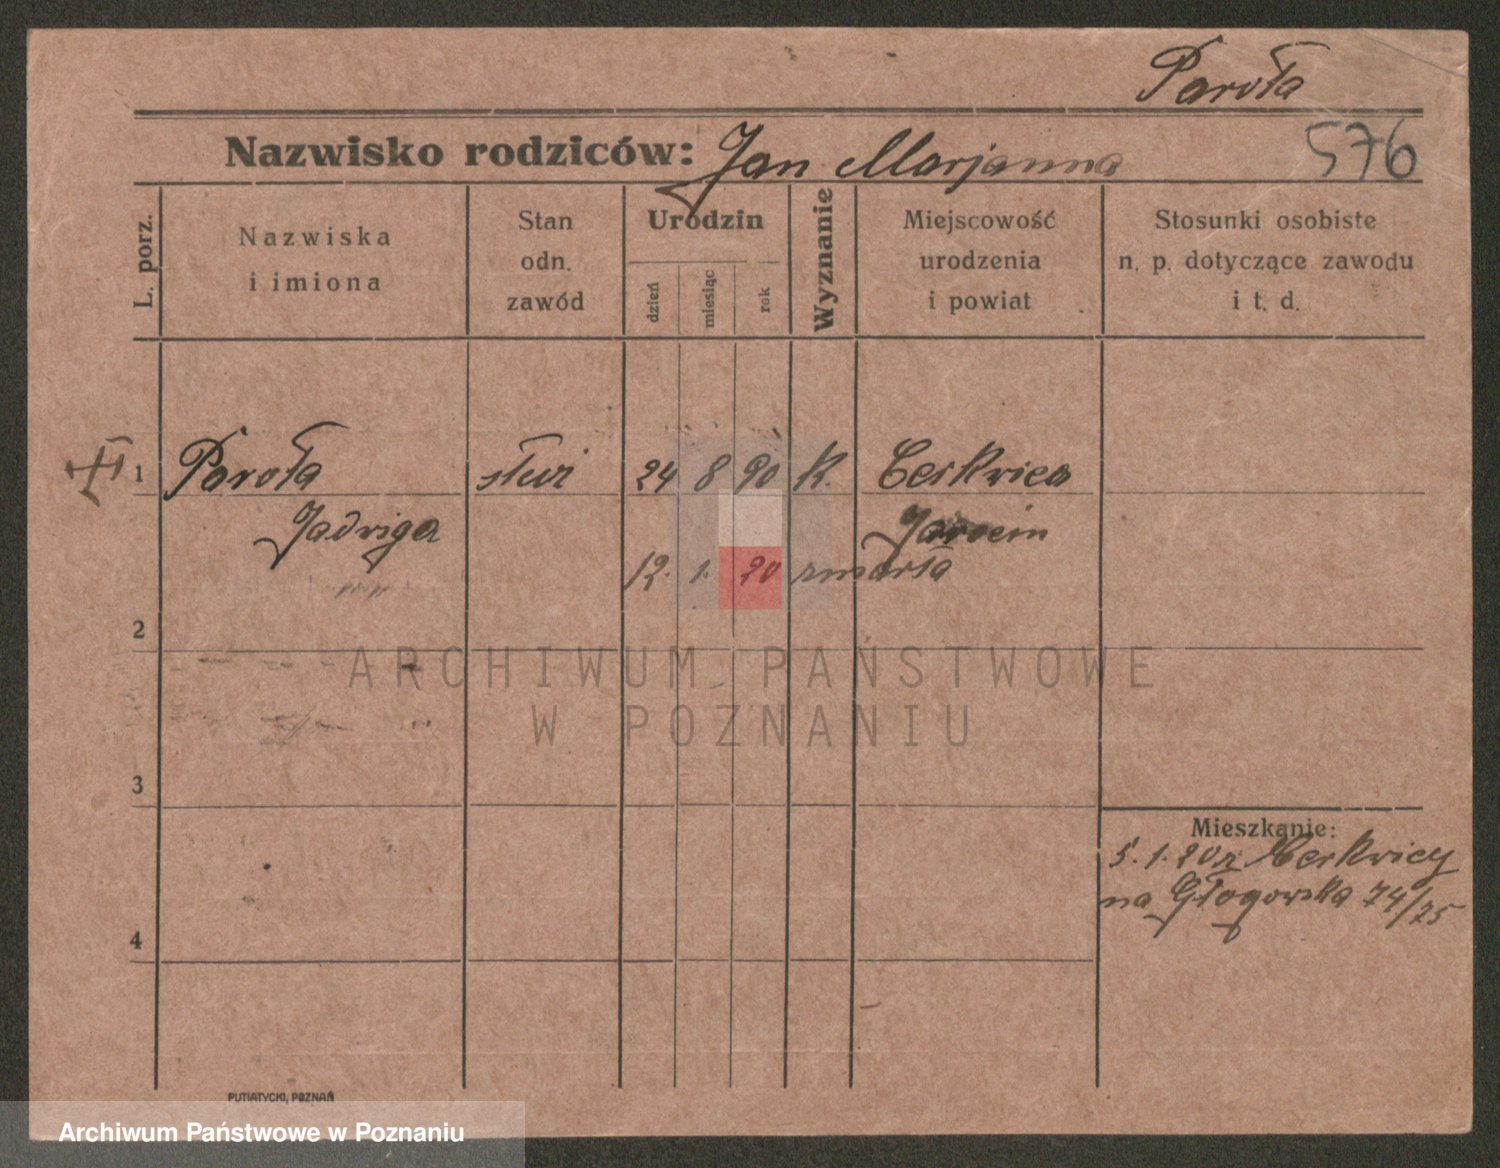 Paroła
Nazwisko rodziców: Jan Marjanna 576
L. porz.
Nazwiska
i imiona
Stan
odn.
zawód
Urodzin
dzień
miesiąc
rok
Wyznanie
Miejscowość
urodzenia
i powiat
Stosunki osobiste
n. p. dotyczące zawodu
i t. d.
1 Paroła służ 24 8 90 K. Cerkwica
Jadwiga Jarocin
12. 1. 20 zmarła
2
ARCHIWUM PAŃSTWOWE
W POZNANIU
3
Mieszkanie:
5. 1. 20 z Cerkwicy
na Głogowska 74/75
4
PUTIATYCKI, POZNAŃ
Archiwum Państwowe w Poznaniu